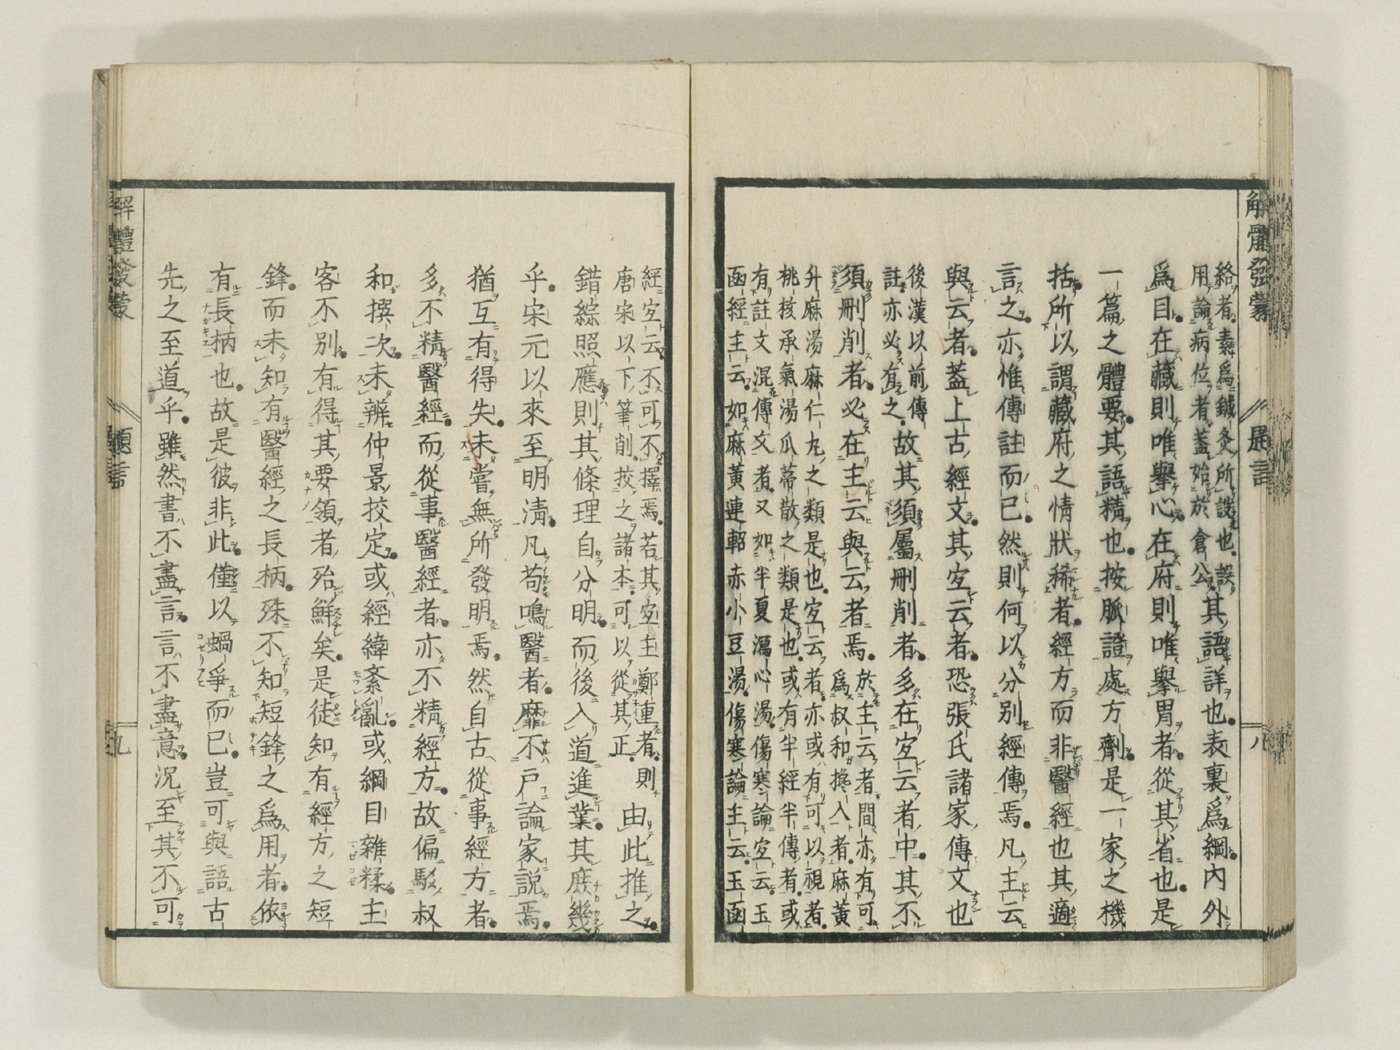 給者素爲鍼灸所設也設
用論病位者蓋始於倉公其語詳也表裏爲綱内外
爲目在藏則唯擧心在府則唯擧胃者從其省也是
一篇之體要其語精也按脈證處方劑是一家之機
括所以謂藏府之情狀稀者經方而非醫經也其適
言之亦惟傳註而已然則何以分別經傳焉凡主云
與云者蓋上古經文其㝎云者恐張氏諸家傳文也
後漢以前傳
註亦必有之故其須屬刪削者多在㝎云者中其不
須刪削者必在主云與云者焉
於主云者間亦有可
爲叔和攙入者麻黃
升麻湯麻仁丸之類是也㝎云者亦或有可以視者
桃核承氣湯瓜蒂散之類是也或有半經半傳者或
有註文混傳文者又如半夏瀉心湯傷寒論㝎云玉
函經主云如麻黃連軺赤小豆湯傷寒論主云玉函
經㝎云不可不擇焉若其㝎主鄭重者則
唐宋以下筆削挍之諸本可以從其正
由此推之
錯綜照應則其條理自分明而後入道進業其庶幾
乎宋元以來至明淸凡苟鳴醫者靡不戸論家説焉
猶互有得失未嘗無所發明焉然自古從事經方者
多不精醫經而從事醫經者亦不精經方故偏駁叔
和撰次未辨仲景挍定或經緯紊亂或綱目雜糅主
客不別有得其要領者殆鮮矣是徒知有經方之短
鋒而未知有醫經之長柄殊不知短鋒之爲用者依
有長柄也故是彼非此僅以蝸爭而已豈可與語古
先之至道乎雖然書不盡言言不盡意況至其不可
解體發蒙
題言
八
解體發蒙
題言
九